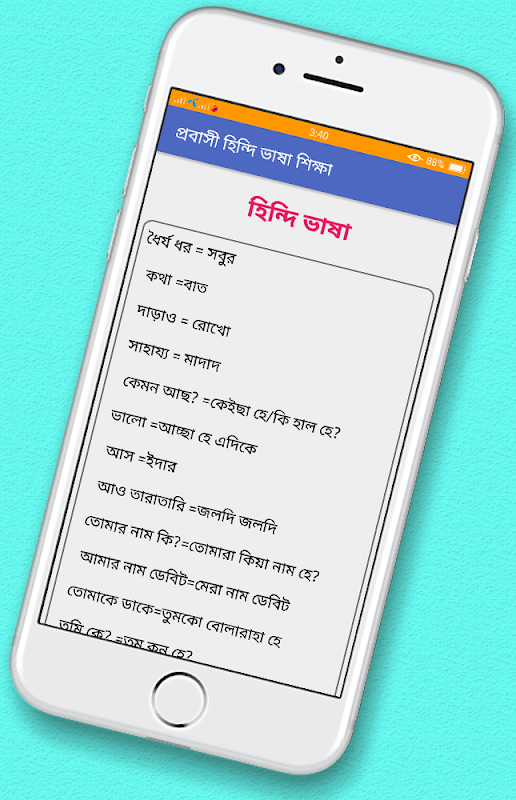 3:40
88%
প্রবাসী হিন্দি ভাষা শিক্ষা
হিন্দি ভাষা
ধৈর্য ধর = সবুর
কথা =বাত
দাড়াও = রোখো
সাহায্য = মাদাদ
কেমন আছ? =কেইছা হে/কি হাল হে?
ভালো =আচ্ছা হে এদিকে
আস =ইদার
আও তারাতারি =জলদি জলদি
তোমার নাম কি?=তোমারা কিয়া নাম হে?
আমার নাম ডেবিট=মেরা নাম ডেবিট
তোমাকে ডাকে=তুমকো বোলারাহা হে
তুমি কে? =তুম কন হে?